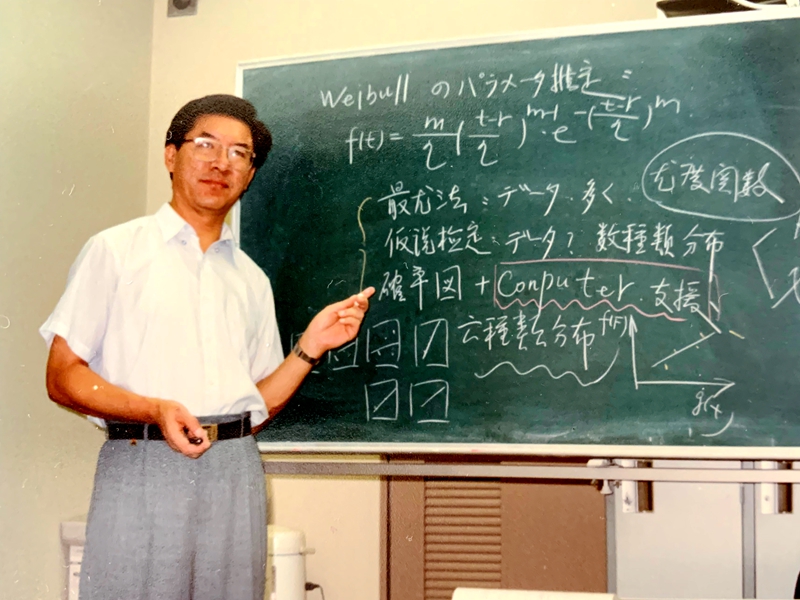 Weibull のパラメータ推定:
f(t) = m/η (t-r/η)^m-1 · e^-(t-r/η)^m
尤度関数
最尤法:データ.多く.
仮说检定:データ? 数種類分布
確率図 + Conputer.支援
六種类分布
f(F)